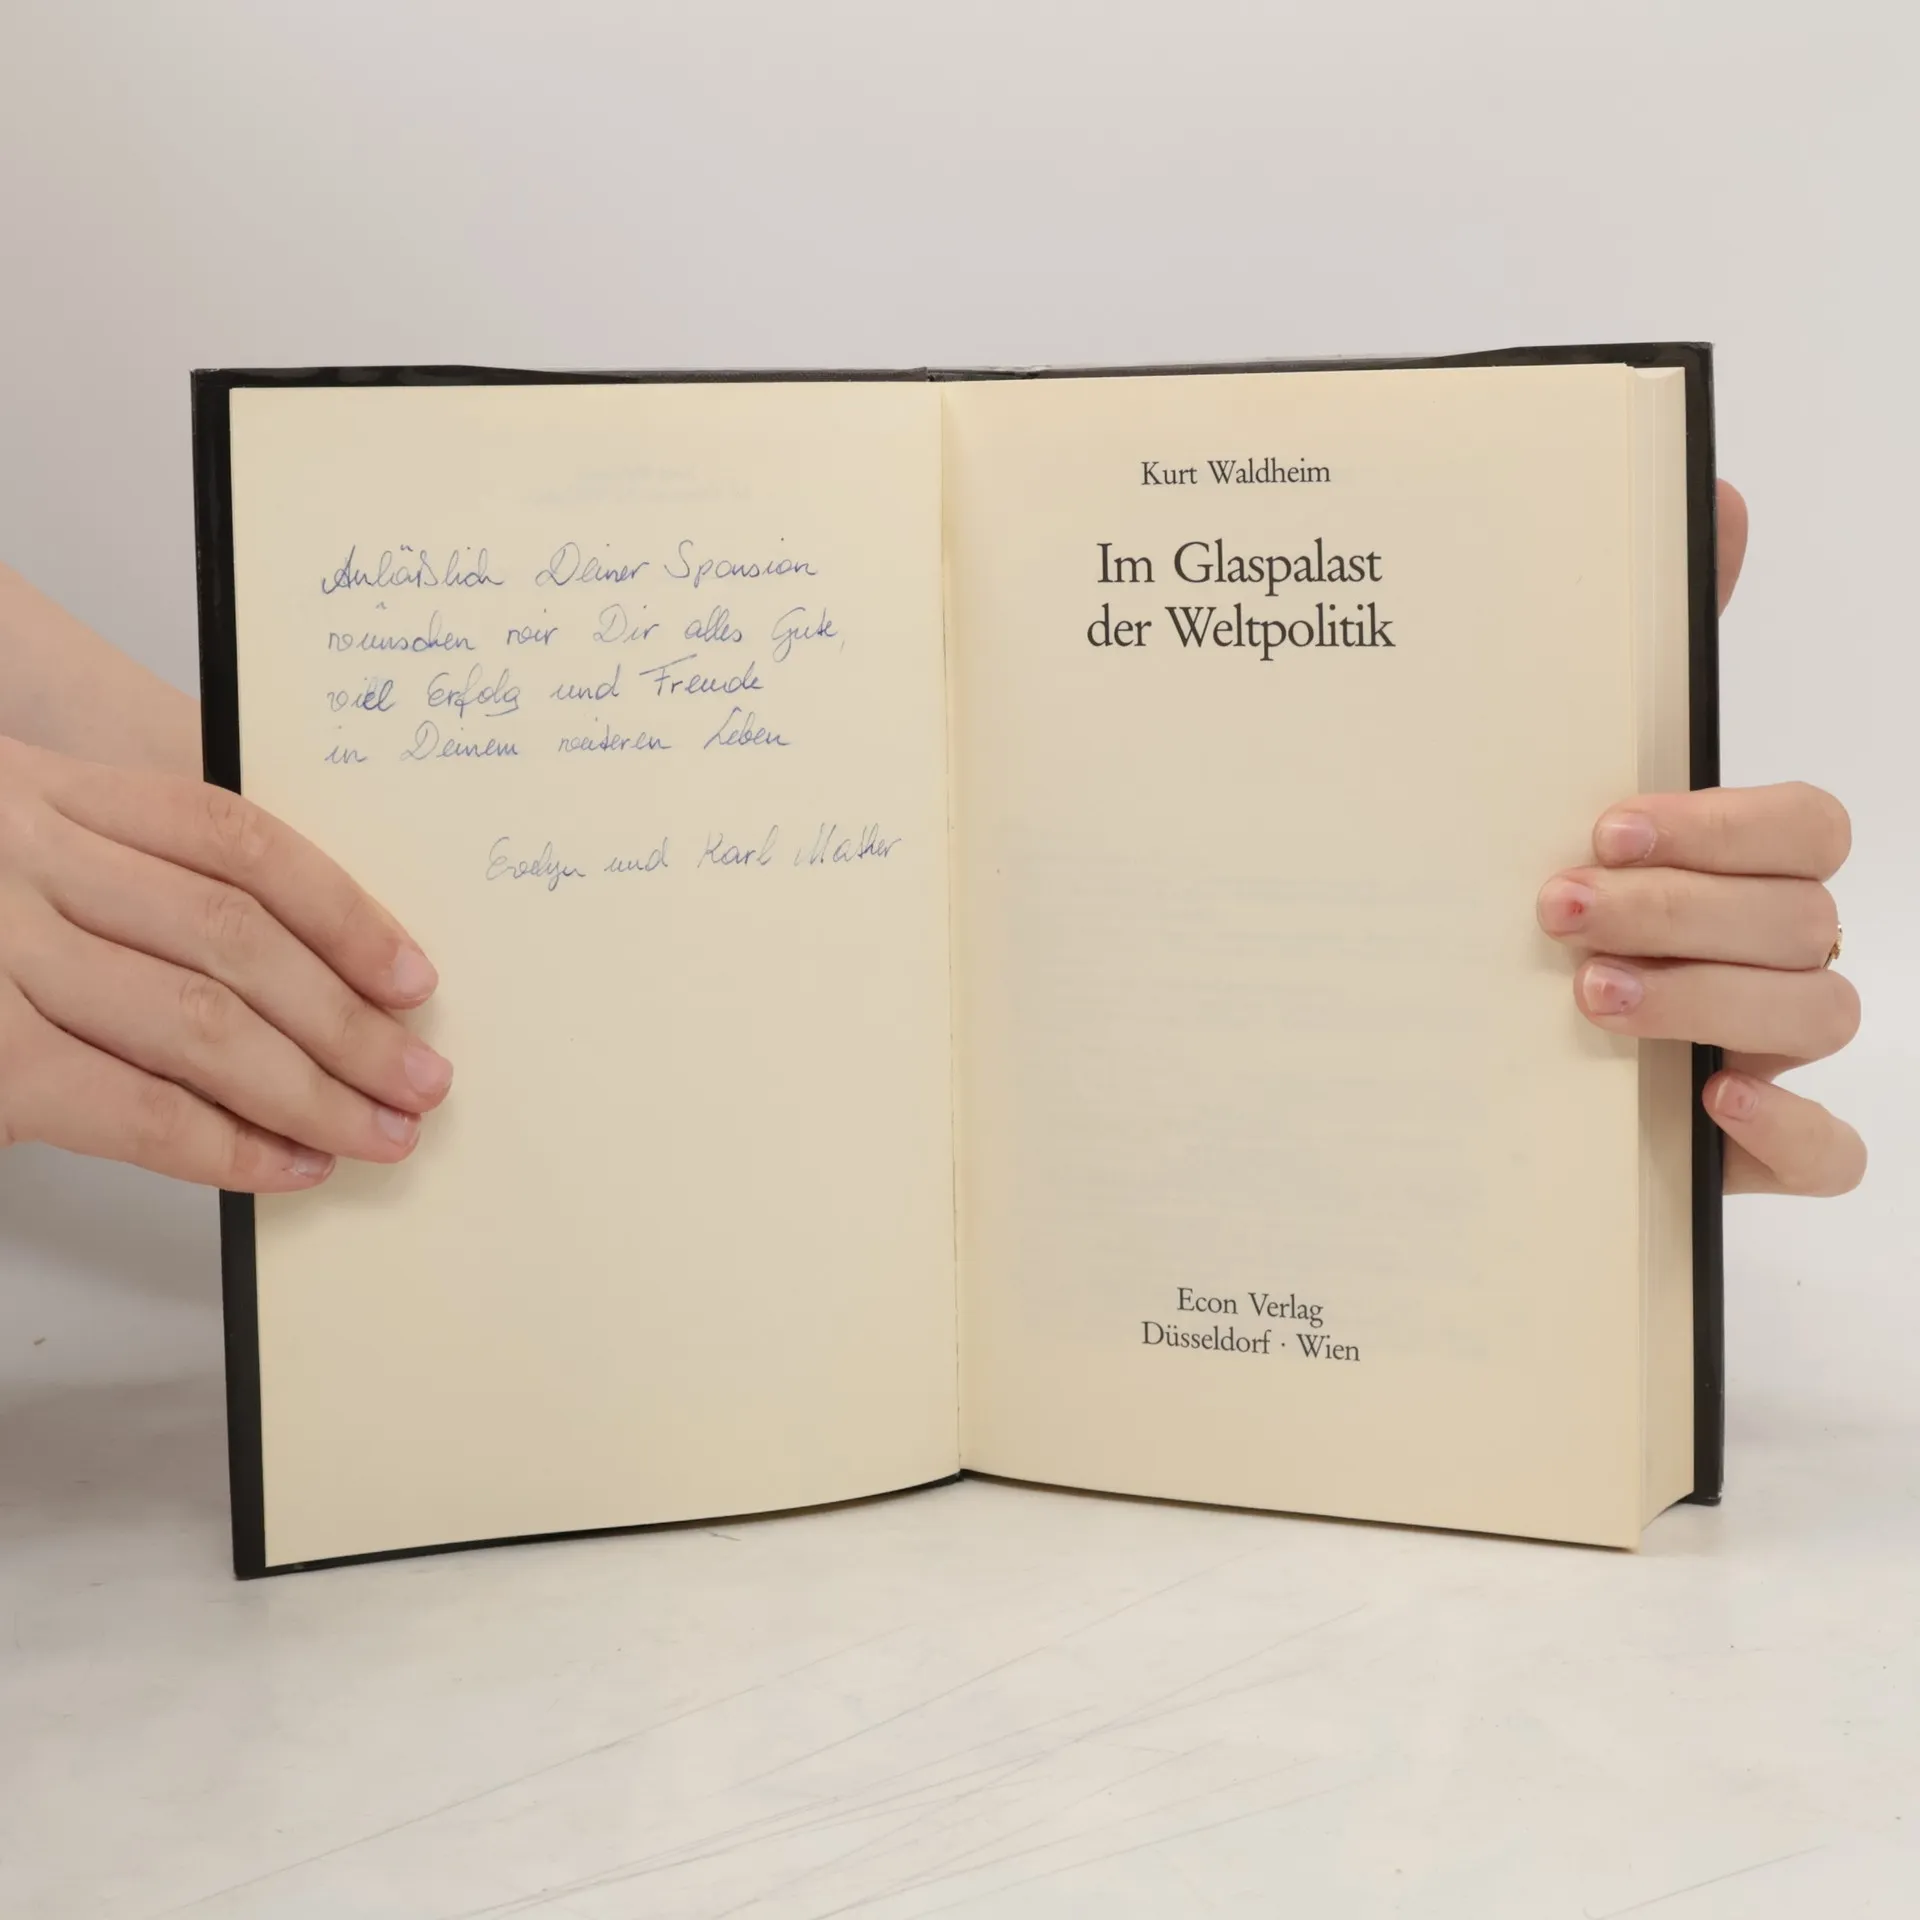 Anläßlich Deiner Sponsion
wünschen wir Dir alles Gute,
viel Erfolg und Freude
in Deinem weiteren Leben
Evelyn und Karl Mather
Kurt Waldheim
Im Glaspalast
der Weltpolitik
Econ Verlag
Düsseldorf · Wien